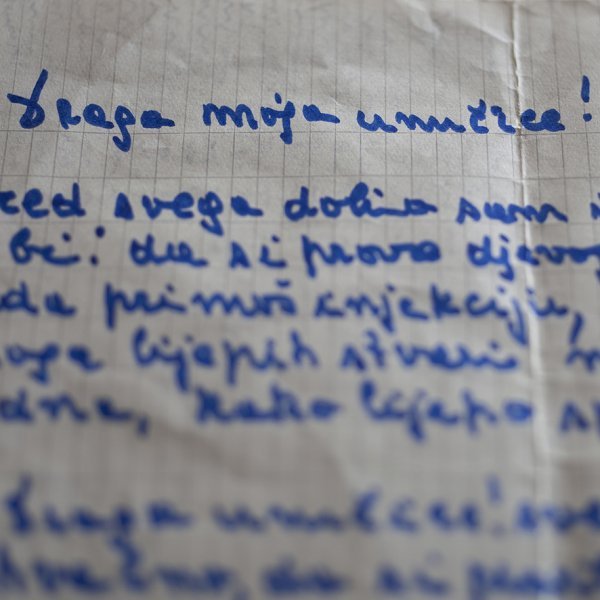 Draga moja unučice!
red svega dobio sam
bi: da si prava djevoj
da primaš injekciju,
oga lijepih stvari
dna, kako lijepo
Draga unučice! sve
da si